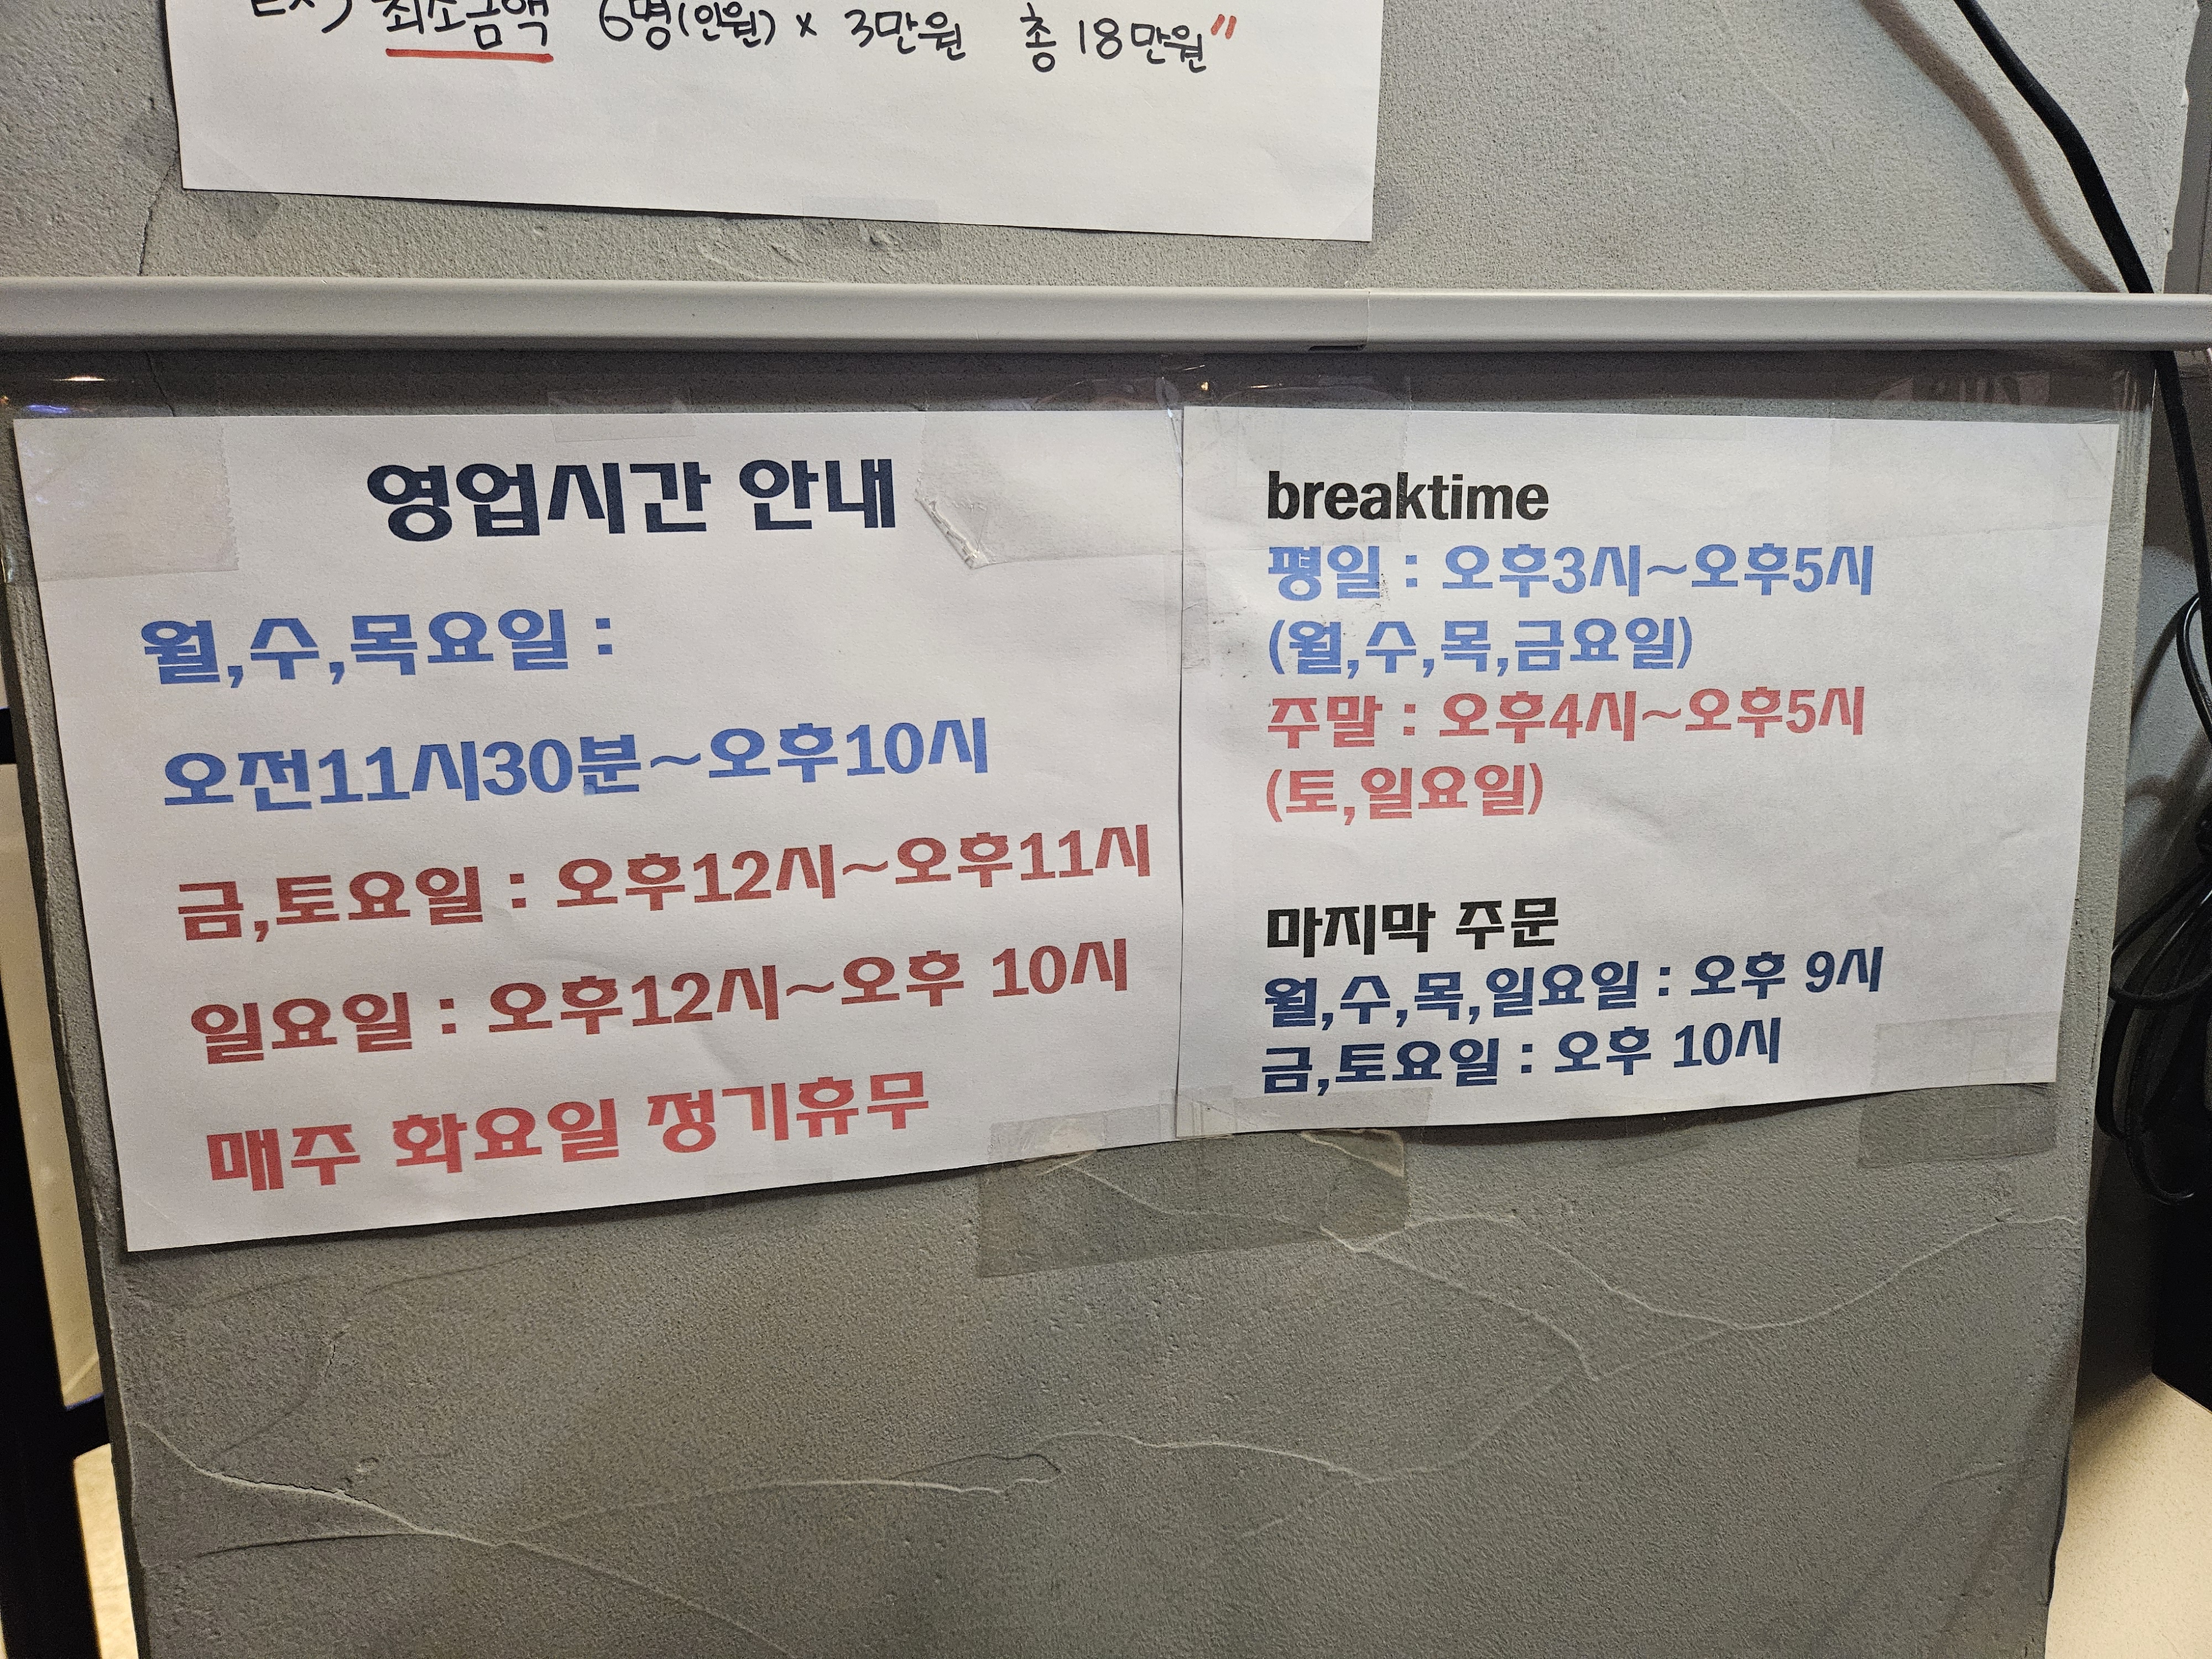 Ex) 최소금액 6명(인원) x 3만원 총 18만원"
영업시간 안내
월,수,목요일 :
오전11시30분~오후10시
금,토요일 : 오후12시~오후11시
일요일 : 오후12시~오후 10시
매주 화요일 정기휴무
breaktime
평일 : 오후3시~오후5시
(월,수,목,금요일)
주말 : 오후4시~오후5시
(토,일요일)
마지막 주문
월,수,목,일요일 : 오후 9시
금,토요일 : 오후 10시